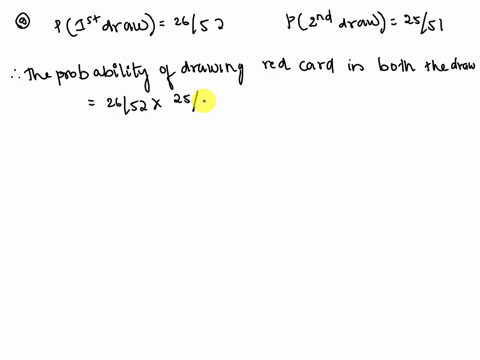 ⓐ P(1st draw) = 26/52 P(2nd draw) = 25/51
∴ The probability of drawing red card in both the draw
= 26/52 × 25/